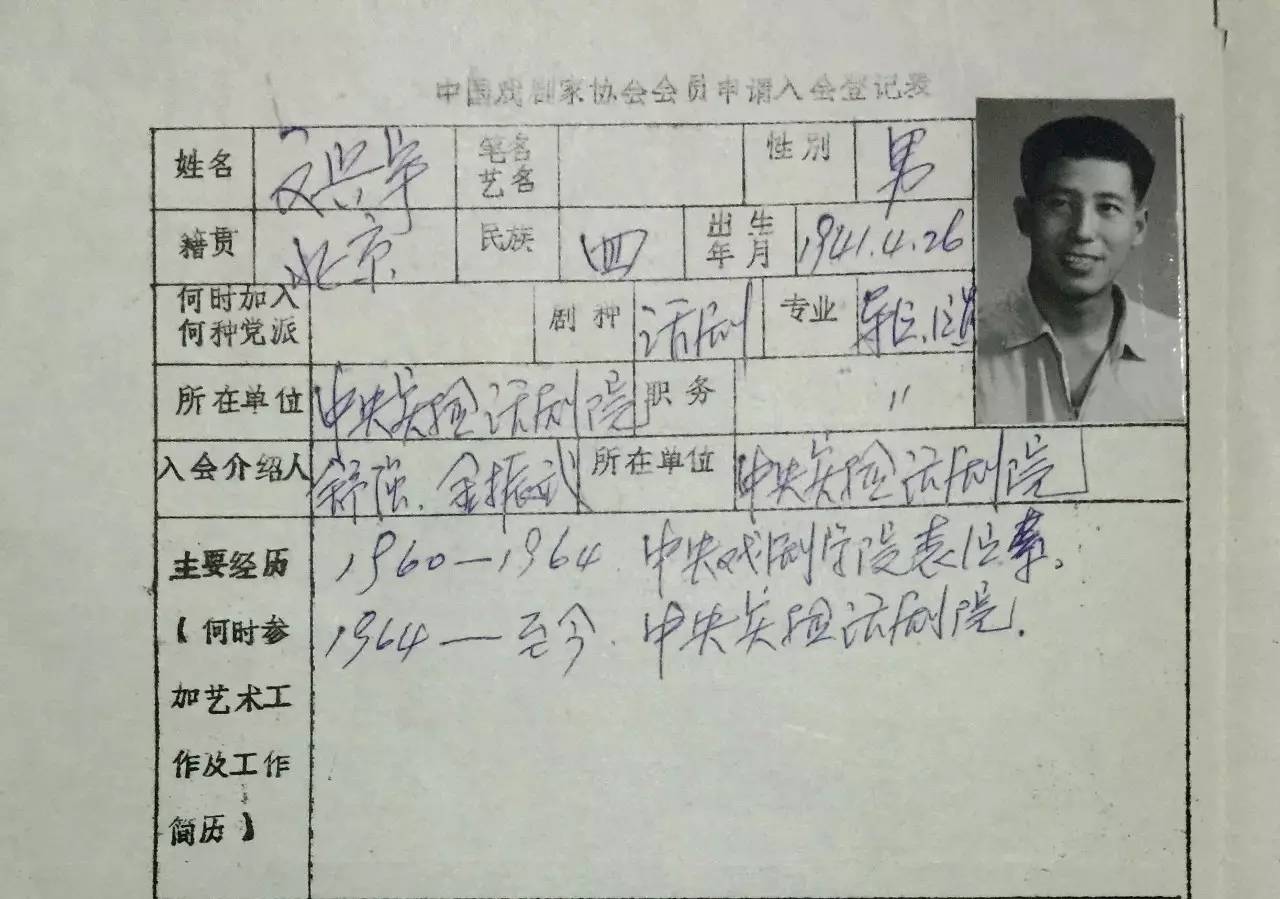 中国戏剧家协会会员申请入会登记表
姓名 文兴宇 笔名艺名 性别 男
籍贯 北京 民族 四 出生年月 1941.4.26
何时加入何种党派 剧种 话剧 专业 导演.演
所在单位 中央实验话剧院 职务 〃
入会介绍人 舒强、金振武 所在单位 中央实验话剧院
主要经历 1960—1964 中央戏剧学院表演系。
(何时参 1964—至今 中央实验话剧院.
加艺术工
作及工作
简历)